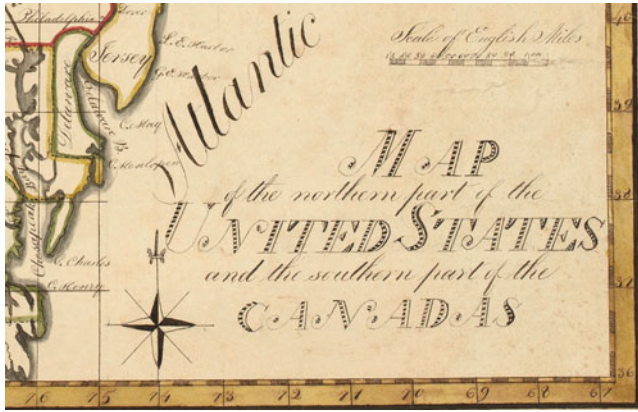 Philadelphia
Jersey
L. E. Harbor
G. E. Harbor
Delaware
Delaware B.
C. May
C. Henlopen
Chesapeak Bay
C. Charles
C. Henry
Atlantic
Scale of English Miles
MAP
of the northern part of the
UNITED STATES
and the southern part of the
CANADAS
40
39
38
37
36
76 75 74 73 72 71 70 69 68 67